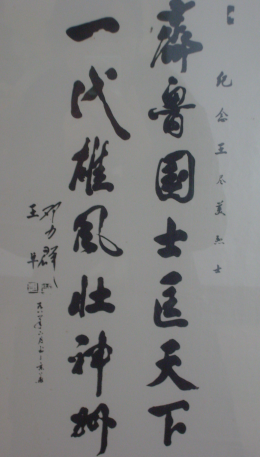 纪念王尽美烈士
齊魯國士匡天下
一代雄风壮神州
邓力群